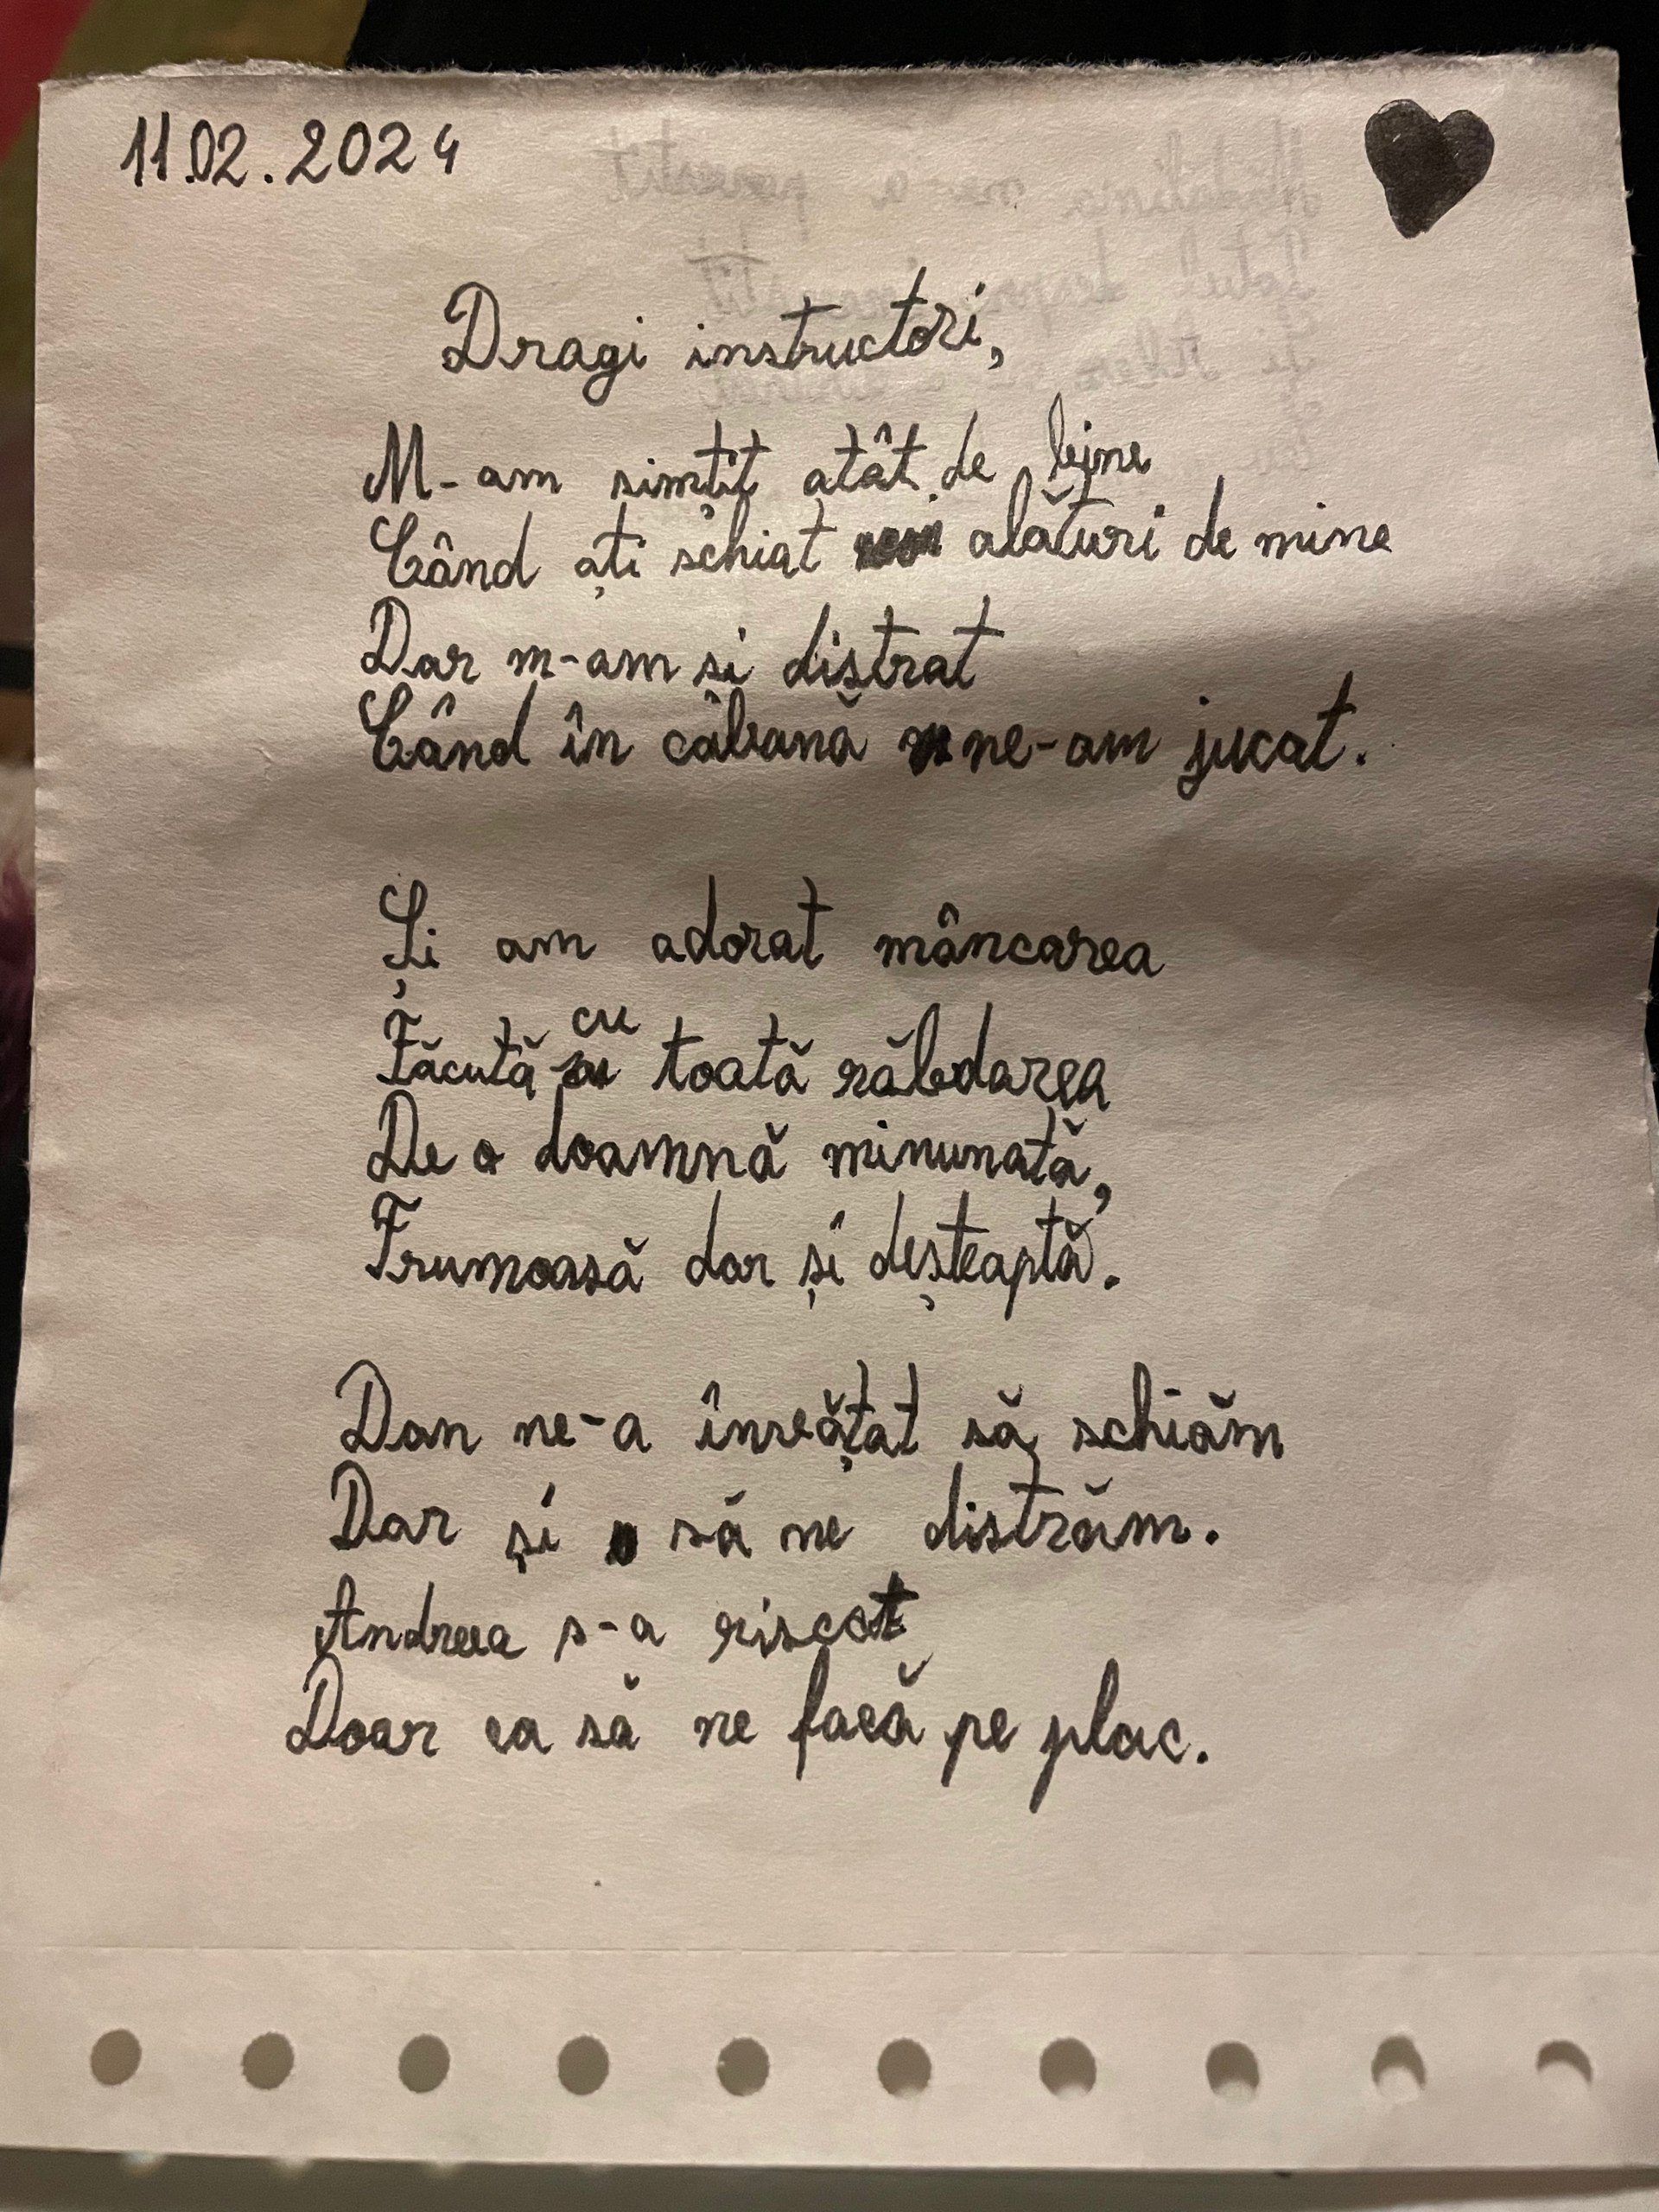 11.02.2024
Dragi instructori,
M-am simțit atât de bine
Când ați schiat alături de mine
Dar m-am si distrat
Când în căbană ne-am jucat.
Și am adorat mâncarea
Făcută cu toată răbdarea
De o doamnă minunată,
Frumoasă dar și deșteaptă.
Dan ne-a învățat să schiăm
Dar și să ne distrăm.
Andreea s-a riscat
Doar ca să ne facă pe plac.